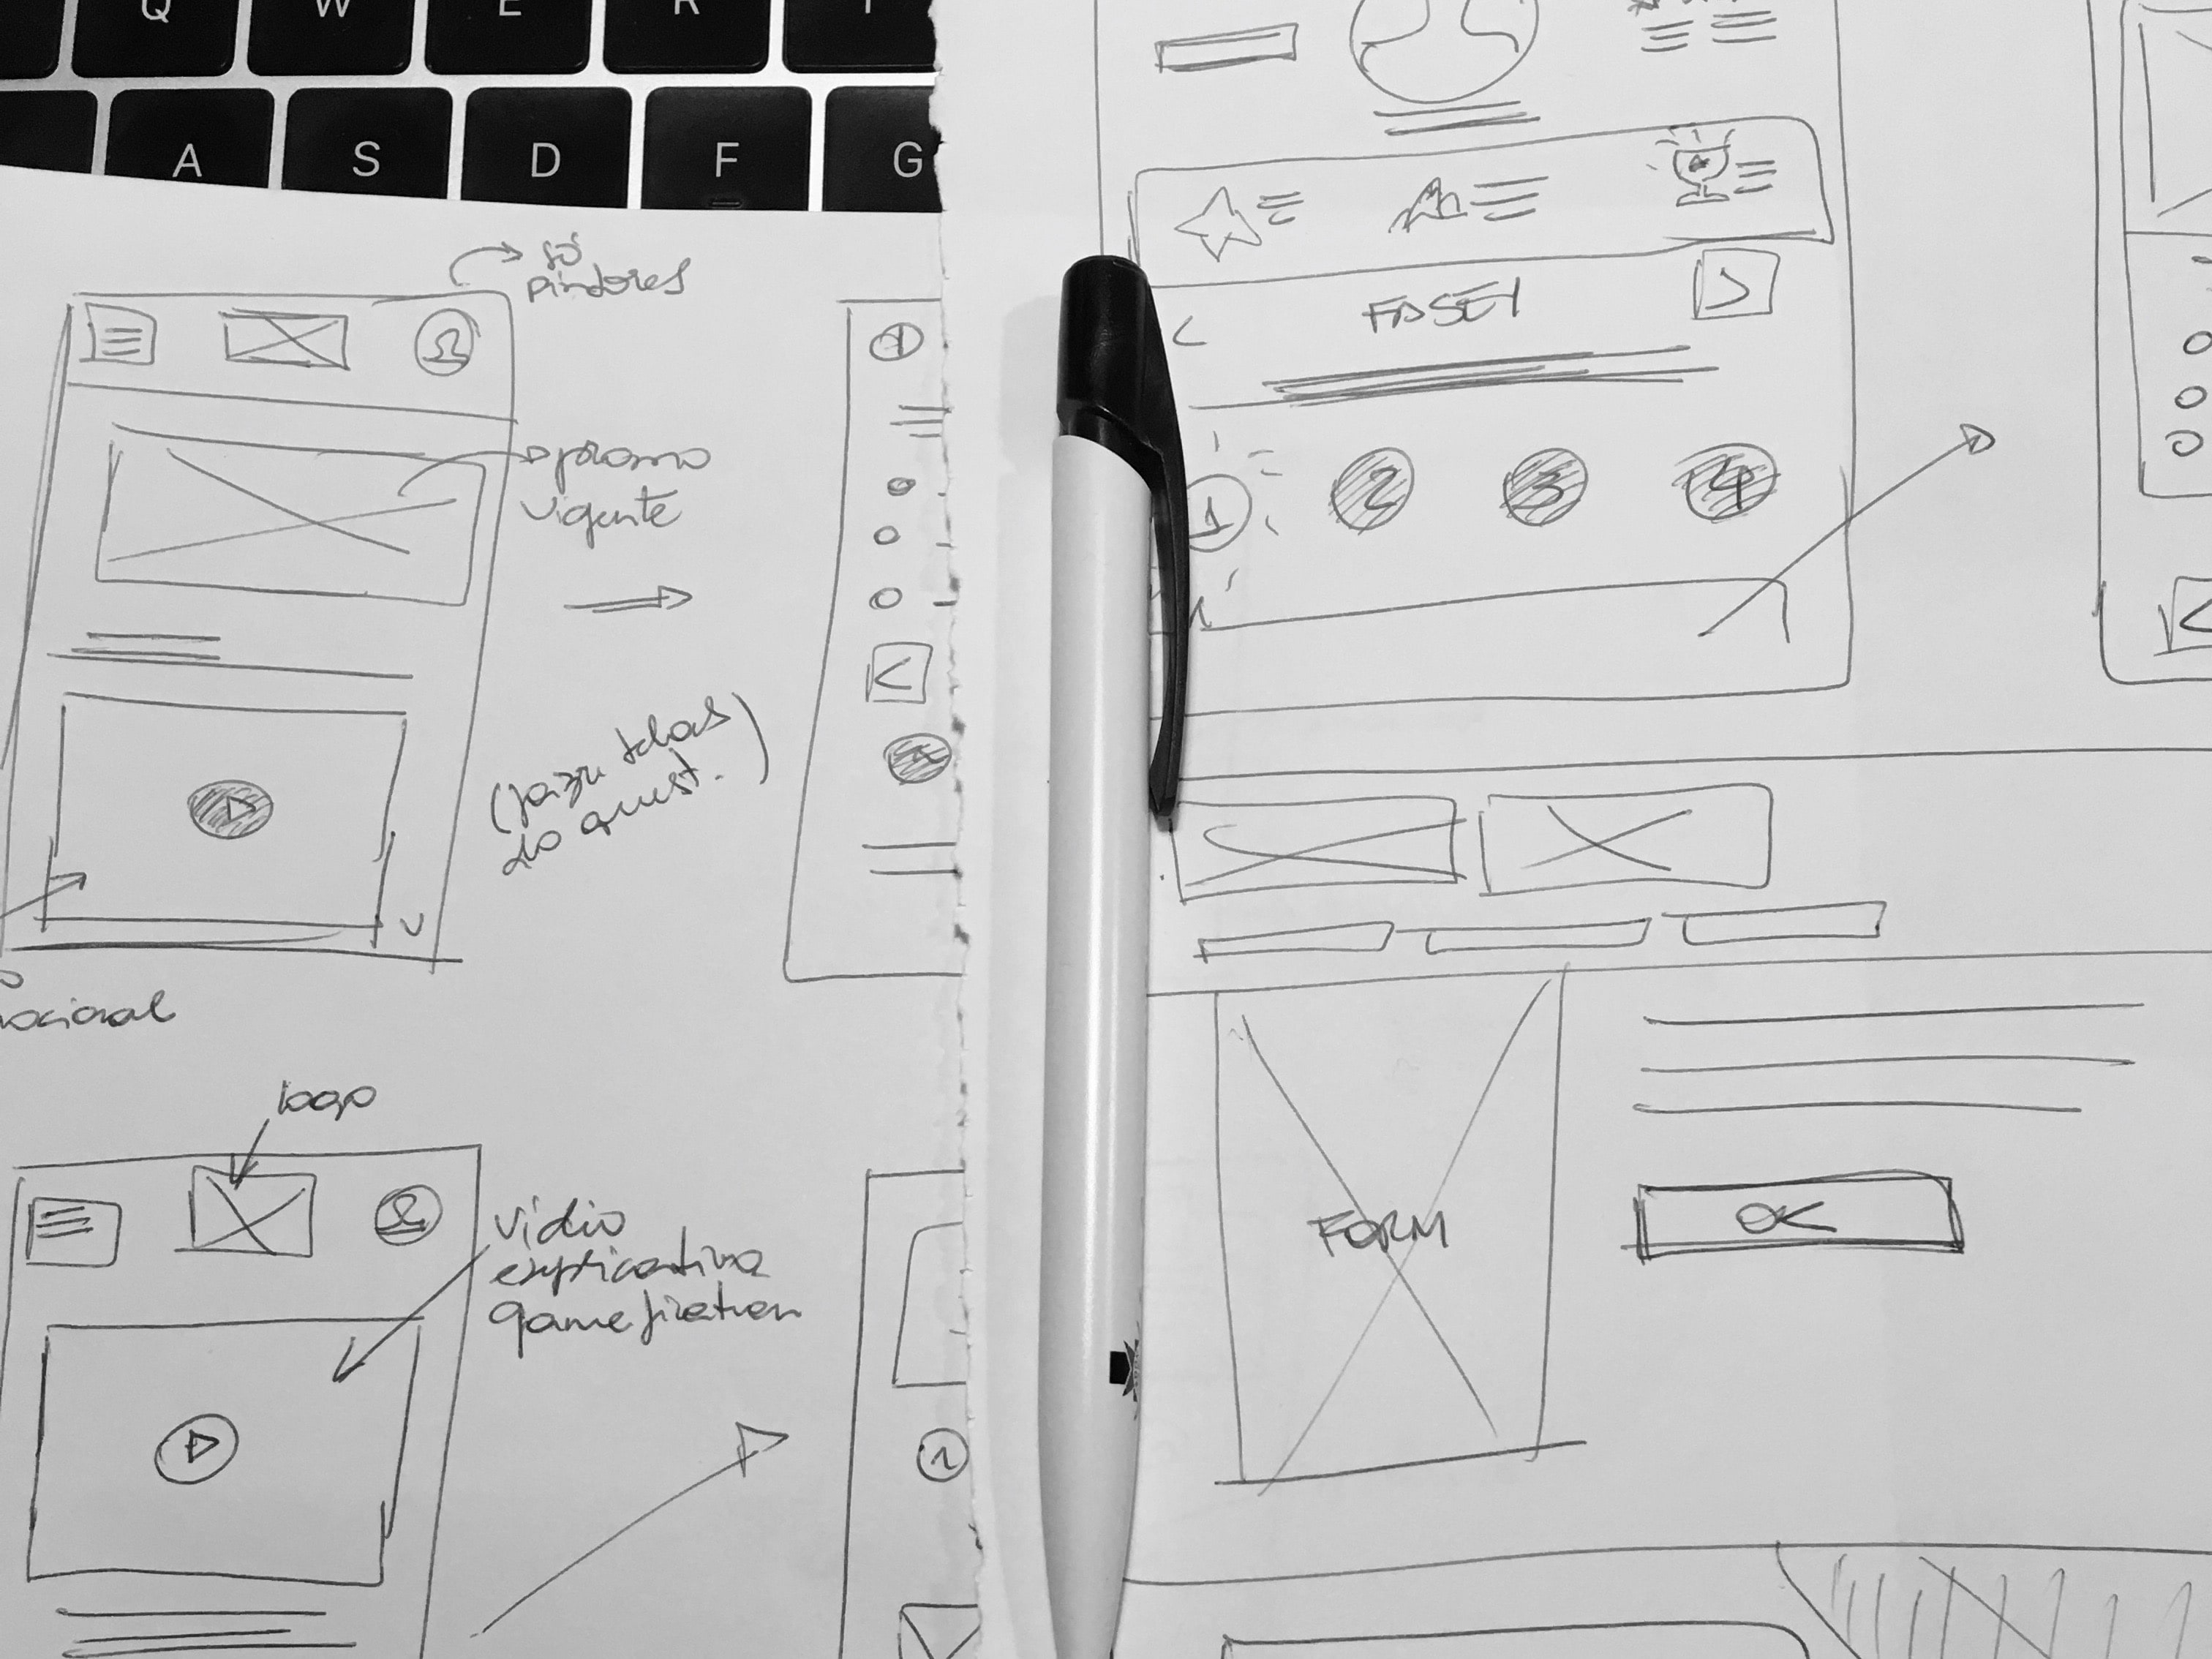 Q W E R T
A S D F G
só
pintores
promo
vigente
(fazer telas
do quest.)
logo
video
explicativo
gamefication
FASE 1
1 2 3 4
FORM
OK
1